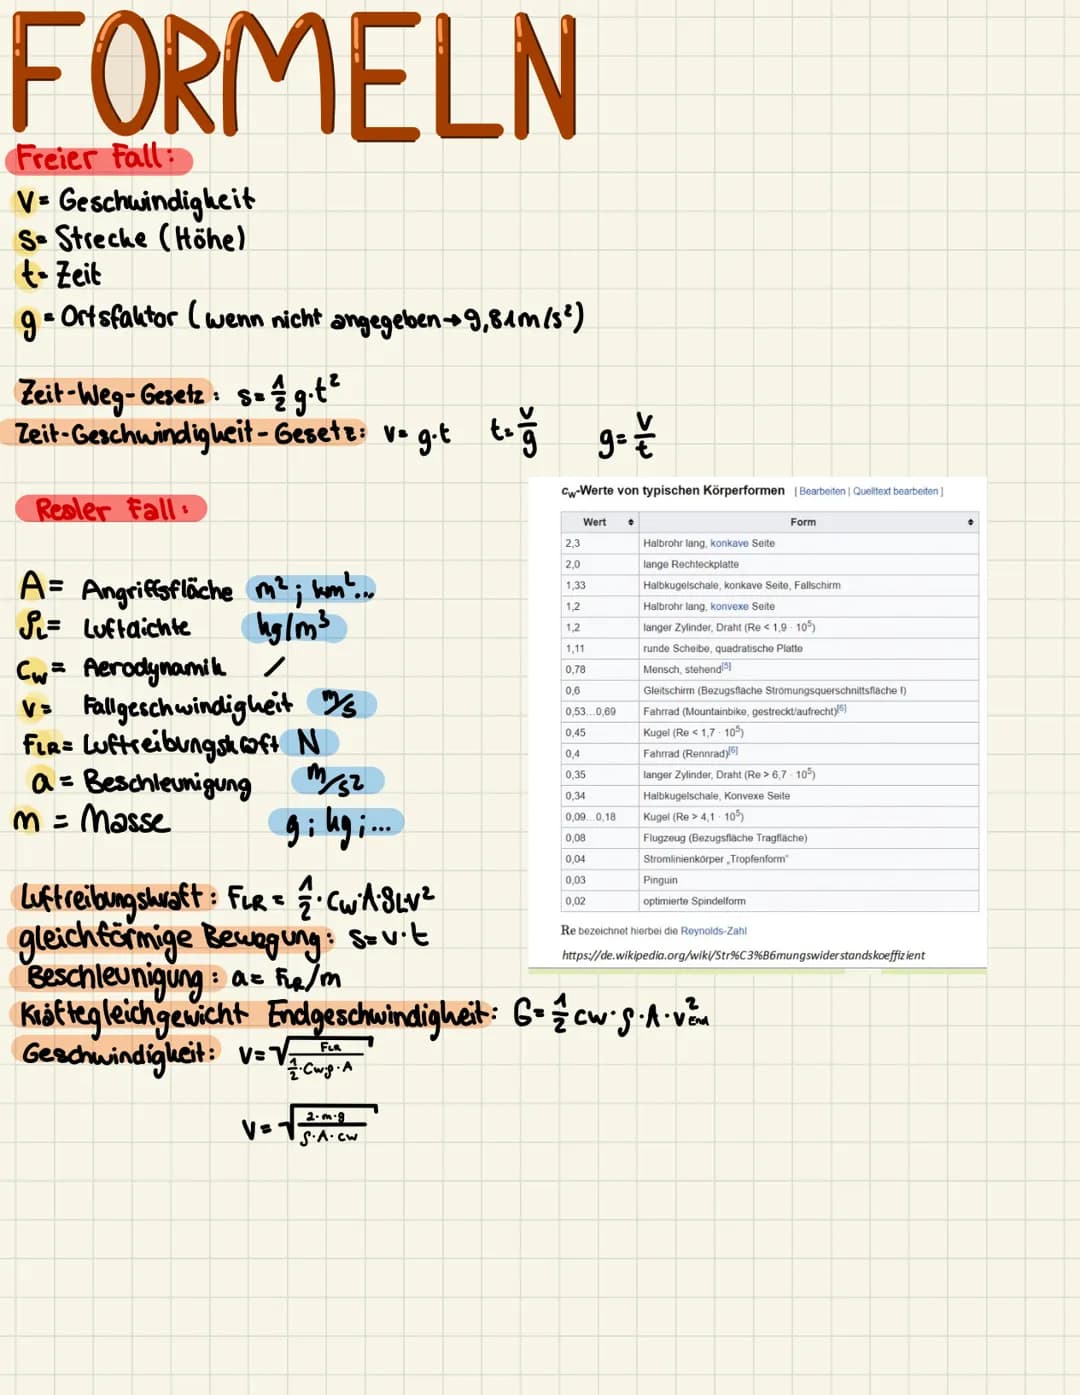 FORMELN
Freier Fall:
V= Geschwindigkeit
S= Strecke (Höhe)
t= Zeit
g= Ortsfaktor (wenn nicht angegeben→9,81m/s²)
Zeit-Weg-Gesetz: s=½ g·t²
Zeit-Geschwindigkeit-Gesetz: v= g·t t= v/g g= v/t
Realer Fall:
A= Angriffsfläche m²; km²...
ρL= Luftdichte kg/m³
Cw= Aerodynamik /
v= Fallgeschwindigkeit m/s
FLR= Luftreibungskraft N
a= Beschleunigung m/s²
m = Masse g; kg;...
Luftreibungskraft: FLR= ½·Cw·A·ρLv²
gleichförmige Bewegung: s=v·t
Beschleunigung: a= FR/m
Kräftegleichgewicht Endgeschwindigkeit: G=½ cw·ρ·A·v²End
Geschwindigkeit: v=√(FLR / ½·Cw·ρ·A)
V=√(2·m·g / ρ·A·cw)
cw-Werte von typischen Körperformen [ Bearbeiten | Quelltext bearbeiten ]
Wert Form
2,3 Halbrohr lang, konkave Seite
2,0 lange Rechteckplatte
1,33 Halbkugelschale, konkave Seite, Fallschirm
1,2 Halbrohr lang, konvexe Seite
1,2 langer Zylinder, Draht (Re < 1,9 · 10⁵)
1,11 runde Scheibe, quadratische Platte
0,78 Mensch, stehend[5]
0,6 Gleitschirm (Bezugsfläche Strömungsquerschnittsfläche !)
0,53...0,69 Fahrrad (Mountainbike, gestreckt/aufrecht)[6]
0,45 Kugel (Re < 1,7 · 10⁵)
0,4 Fahrrad (Rennrad)[6]
0,35 langer Zylinder, Draht (Re > 6,7 · 10⁵)
0,34 Halbkugelschale, Konvexe Seite
0,09...0,18 Kugel (Re > 4,1 · 10⁵)
0,08 Flugzeug (Bezugsfläche Tragfläche)
0,04 Stromlinienkörper „Tropfenform"
0,03 Pinguin
0,02 optimierte Spindelform
Re bezeichnet hierbei die Reynolds-Zahl
https://de.wikipedia.org/wiki/Str%C3%B6mungswiderstandskoeffizient